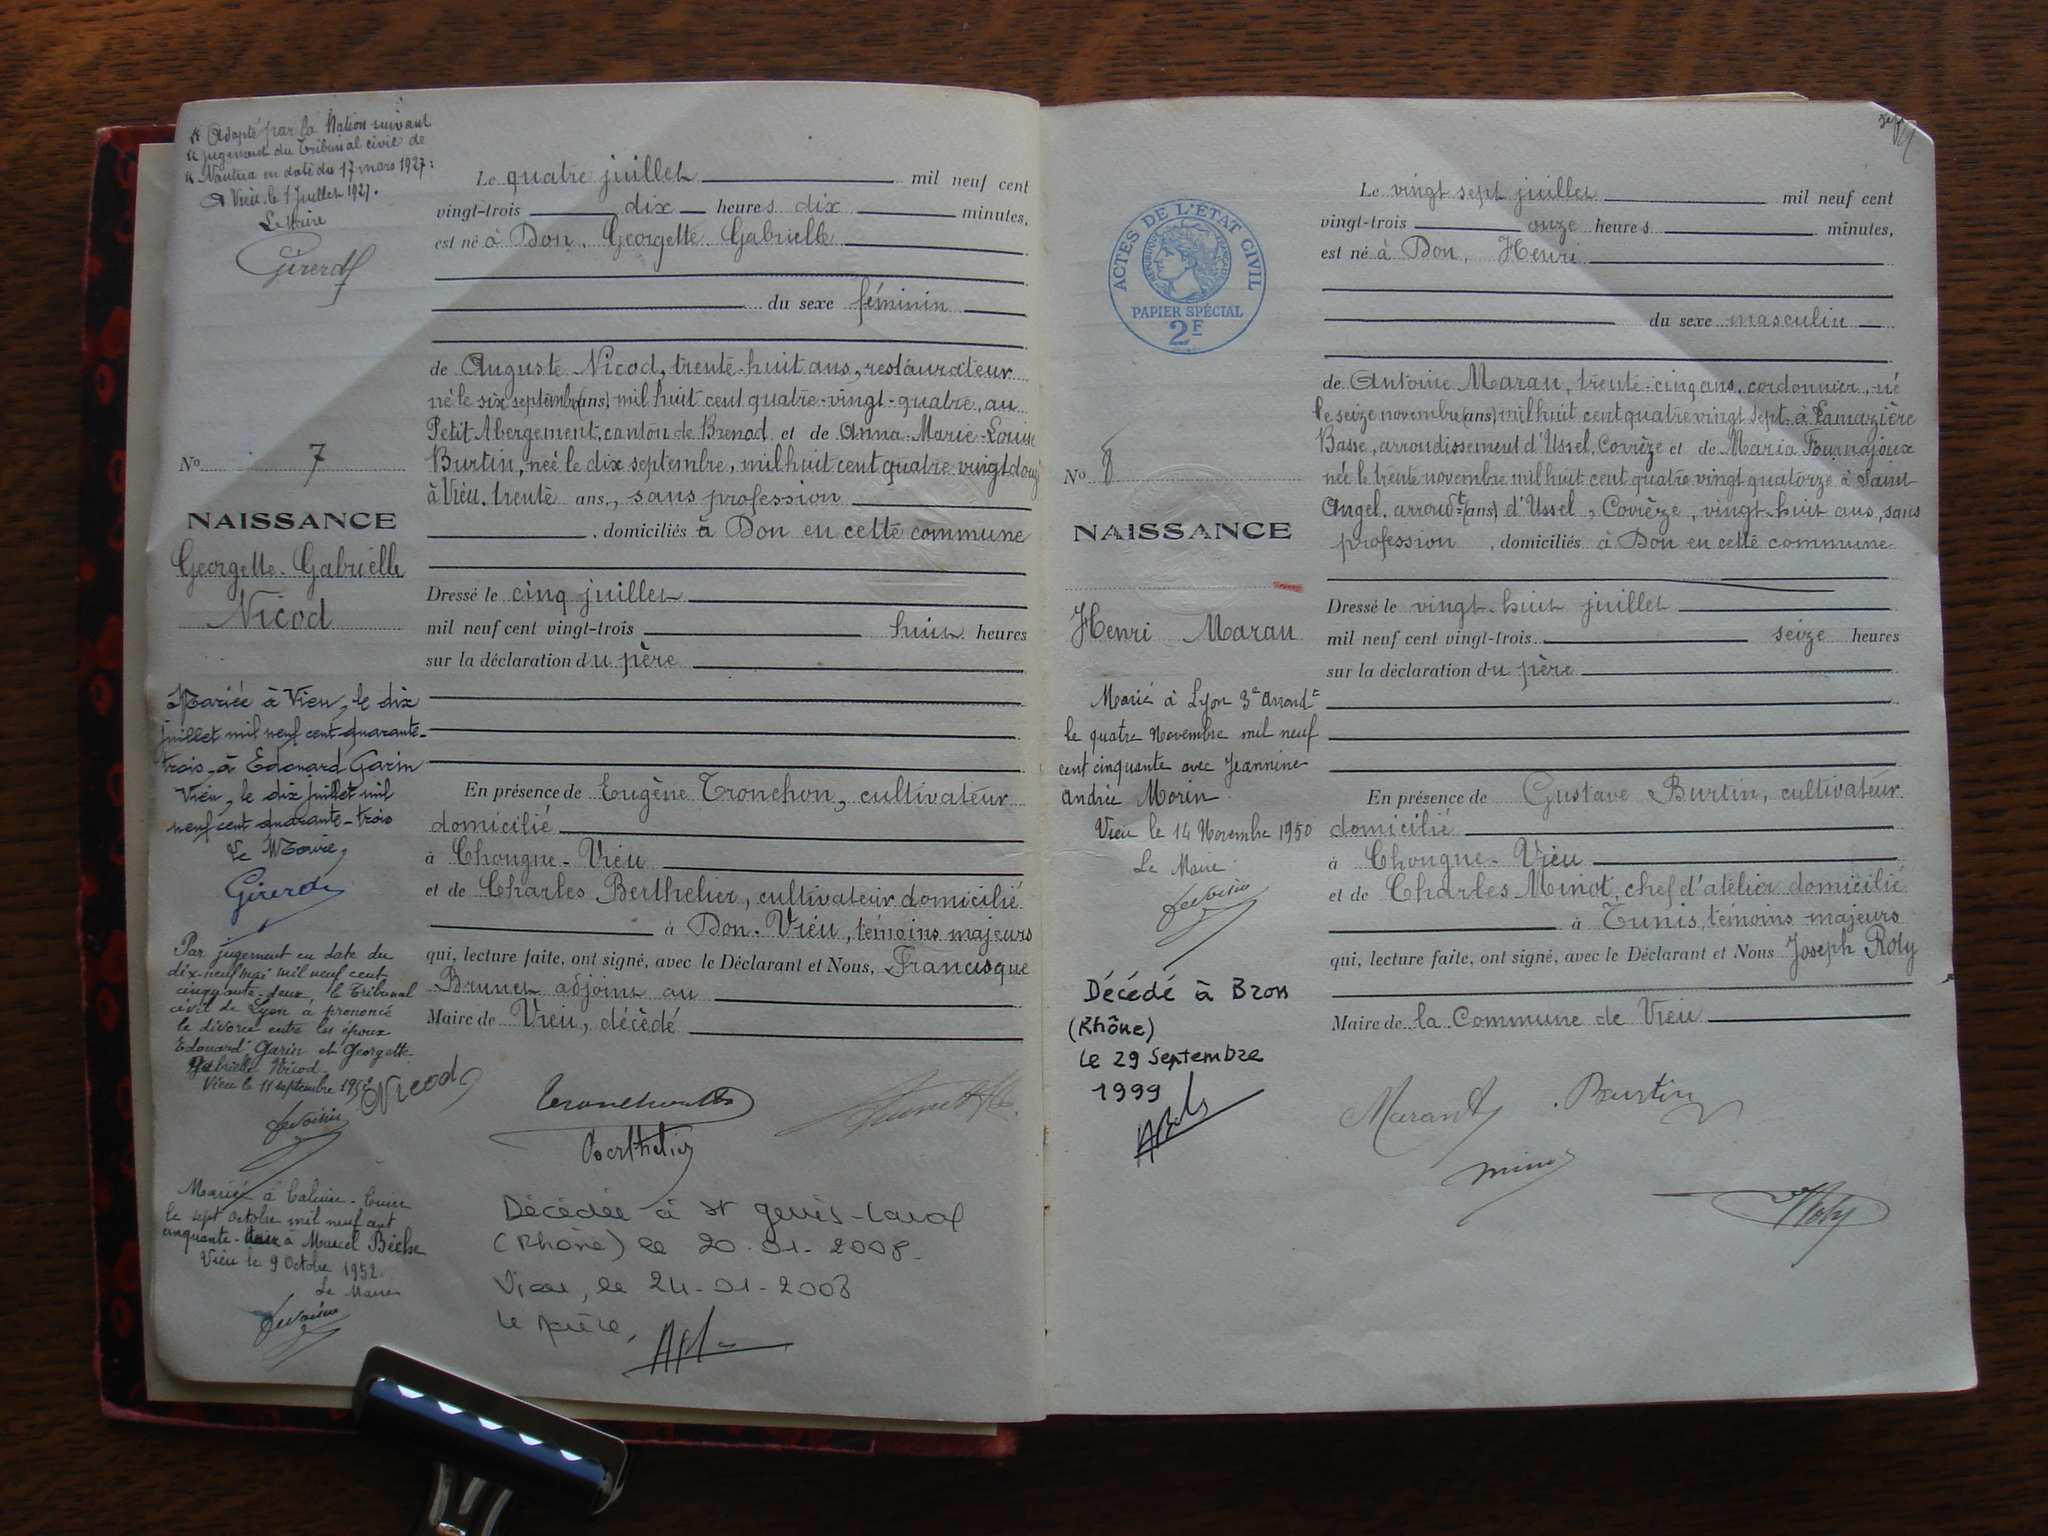 « Adopté par la Nation suivant
« jugement du Tribunal civil de
« Nantua en date du 17 mars 1927 :
A Vieu le 1 juillet 1927.
Le Maire
Girerd
Le quatre juillet mil neuf cent
vingt-trois dix heures dix minutes,
est né à Don, Georgette Gabrielle
du sexe féminin
de Auguste Nicod, trente-huit ans, restaurateur
né le six septembre (ans) mil huit cent quatre-vingt-quatre, au
Petit Abergement, canton de Brenod et de Anna-Marie-Louise
Burtin, née le dix septembre, mil huit cent quatre-vingt douze
à Vieu, trente ans, sans profession
, domiciliés à Don en cette commune
Dressé le cinq juillet
mil neuf cent vingt-trois huit heures
sur la déclaration du père
En présence de Eugène Tronchon, cultivateur
domicilié
à Chongne-Vieu
et de Charles Berthelier, cultivateur domicilié
à Don-Vieu, témoins majeurs
qui, lecture faite, ont signé, avec le Déclarant et Nous, Francisque
Brunet adjoint au
Maire de Vieu, décédé
No 7
NAISSANCE
Georgette-Gabrielle
Nicod
Mariée à Vieu, le dix
juillet mil neuf cent quarante-
trois, à Edouard Garin
Vieu, le dix juillet mil
neuf cent quarante-trois
Le Maire,
Girerd
Par jugement en date du
dix-neuf mai mil neuf cent
cinquante-deux, le Tribunal
civil de Lyon a prononcé
le divorce entre les époux
Edouard Garin et Georgette
Gabrielle Nicod.
Vieu le 11 septembre 1952
Nicod
Tronchon
Berthelier
Mariée à Caluire-Cuire
le sept octobre mil neuf cent
cinquante-deux à Marcel Bèche
Vieu le 9 Octobre 1952.
Le Maire
Décédée à St Genis-Laval
(Rhône) le 20-01-2008
Vieu, le 24-01-2008
Le Maire,
ACTES DE L'ÉTAT CIVIL
RÉPUBLIQUE FRANÇAISE
PAPIER SPÉCIAL
2F
Le vingt sept juillet mil neuf cent
vingt-trois onze heures minutes,
est né à Don, Henri
du sexe masculin
de Antoine Maran, trente-cinq ans, cordonnier, né
le seize novembre (ans) mil huit cent quatre vingt sept à Lamazière
Basse, arrondissement d'Ussel, Corrèze et de Maria Fournajoux
née le trente novembre mil huit cent quatre vingt quatorze à Saint
Angel, arroudt (ans) d'Ussel, Corrèze, vingt-huit ans, sans
profession, domiciliés à Don en cette commune
Dressé le vingt-huit juillet
mil neuf cent vingt-trois seize heures
sur la déclaration du père
En présence de Gustave Burtin, cultivateur
domicilié
à Chongne-Vieu
et de Charles Minot, chef d'atelier domicilié
à Tunis, témoins majeurs
qui, lecture faite, ont signé, avec le Déclarant et Nous Joseph Roly
Maire de la Commune de Vieu
No 8
NAISSANCE
Henri Maran
Marié à Lyon 3e Arrondt
le quatre Novembre mil neuf
cent cinquante avec Jeannine
Andrée Morin
Vieu le 14 Novembre 1950
Le Maire
Décédé à Bron
(Rhône)
le 29 Septembre
1999
Marant
Burtin
Minot
Roly